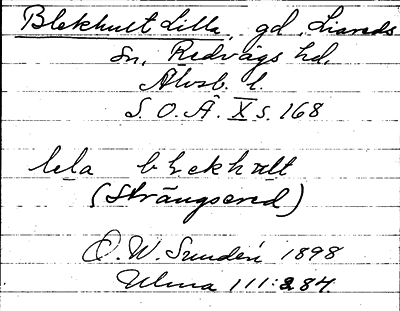 Blekhult Lilla, gd, Liareds
sn, Redvägs hd,
Älvsb. l.
S. O. Ä. X s. 168
lela blekhult
(Strängsered)
O. W. Sundén 1898
Ulma 111:284.